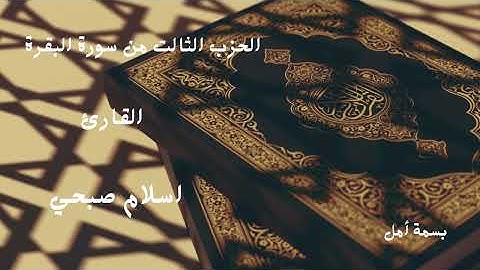 الحزب الثالت من سورة البقرة
القارئ
اسلام صبحي
بسمة أمل